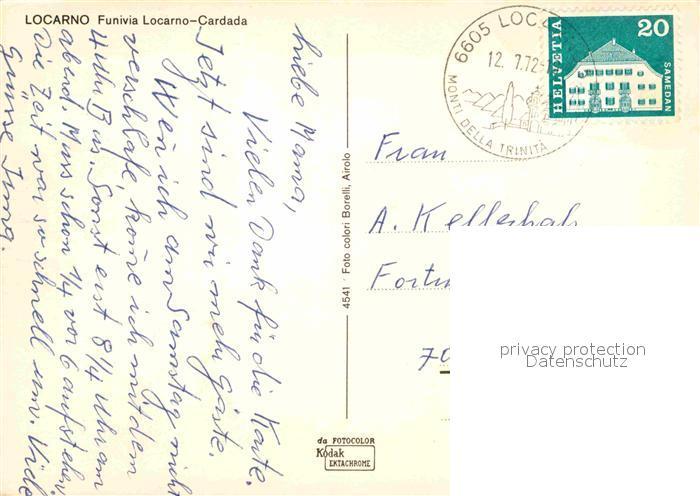 LOCARNO Funivia Locarno-Cardada
Liebe Mama,
Vielen Dank für die Karte.
Jetzt sind wir mehr Gäste.
Wen ich am Samstag nicht
verschlafe, kome ich mit dem
4 Uhr Bus. Sonst erst 8 1/4 Uhr am
abend. Muss schon 1/4 vor 6 aufstehen.
Die Zeit war so schnell um. Viele
Grüsse Irma.
4541 · Foto colori Borelli, Airolo
da FOTOCOLOR
Kodak
EKTACHROME
6605 LOCA
12. 7.72
MONTI DELLA TRINITA
HELVETIA
20
SAMEDAN
Frau
A. Kellerhals
Fortu
70
privacy protection
Datenschutz